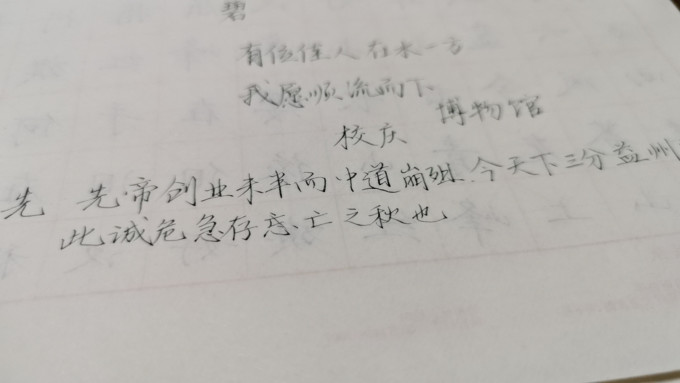 碧
有位佳人在水一方
我愿顺流而下
博物馆
校庆
先 先帝创业未半而中道崩殂.今天下三分益州
此诚危急存亡之秋也